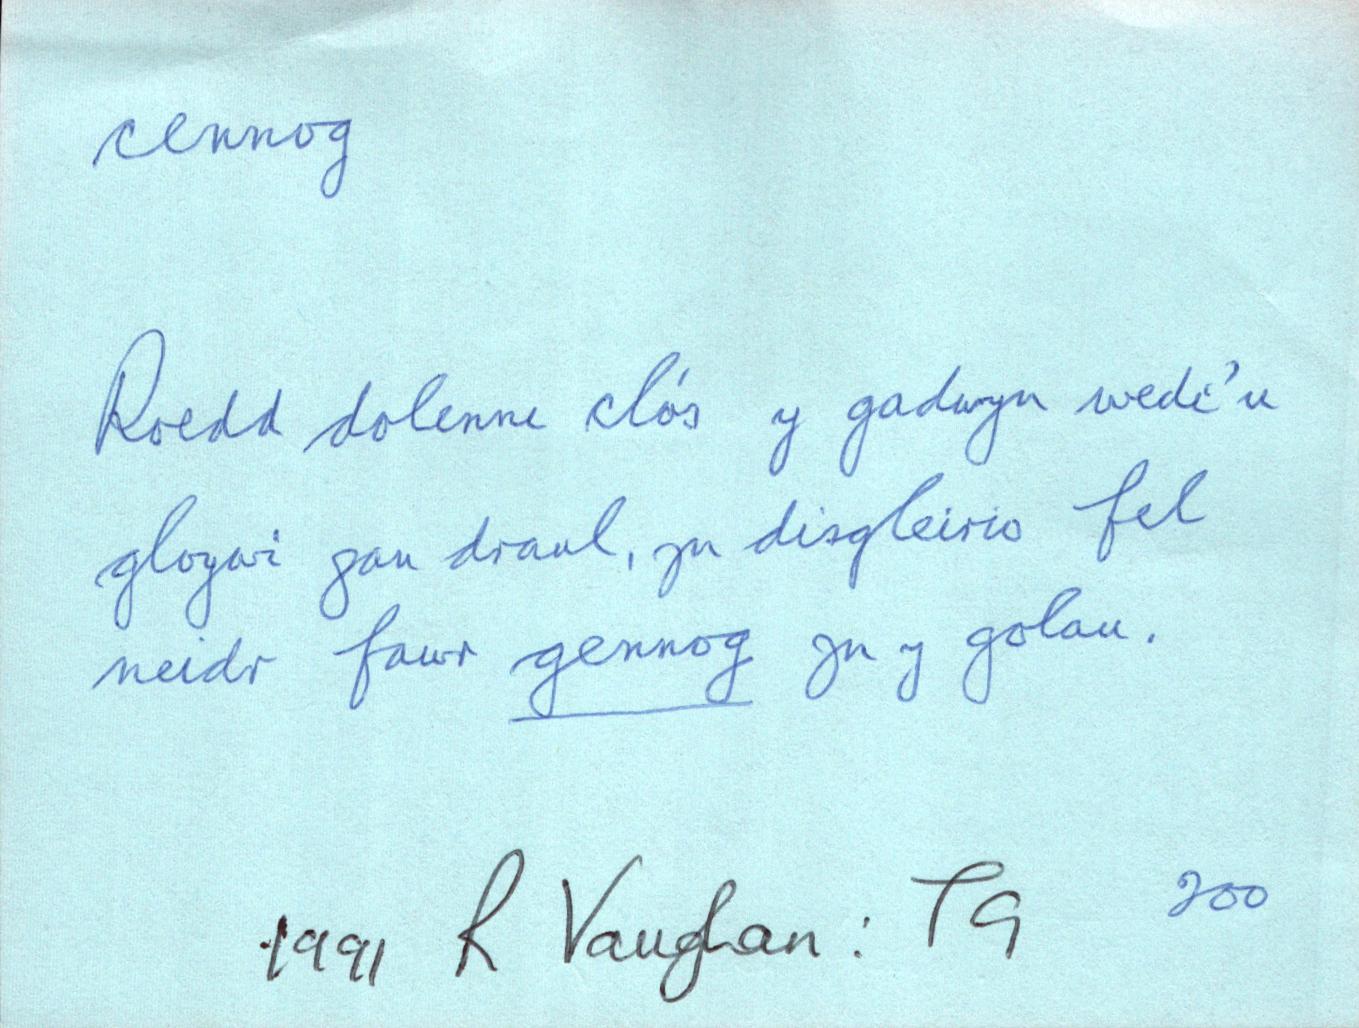 cennog
Roedd dolenne clós y gadwyn wedi'u
gloywi gan draul, yn disgleirio fel
neidr fawr gennog yn y golau.
1991 R Vaughan: TG 200